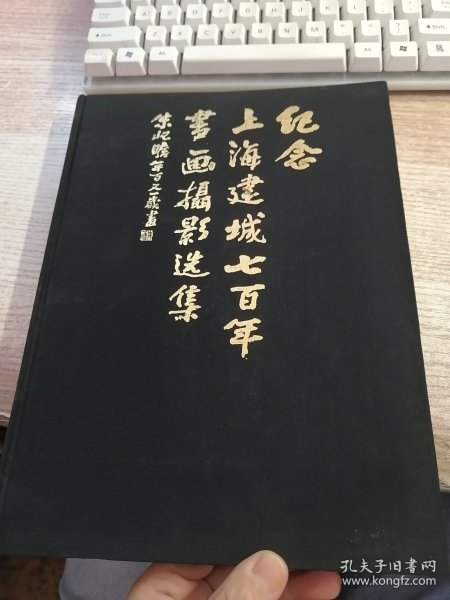 纪念
上海建城七百年
書画攝影选集
朱屺瞻年百又一歲書
孔夫子旧书网
www.kongfz.com